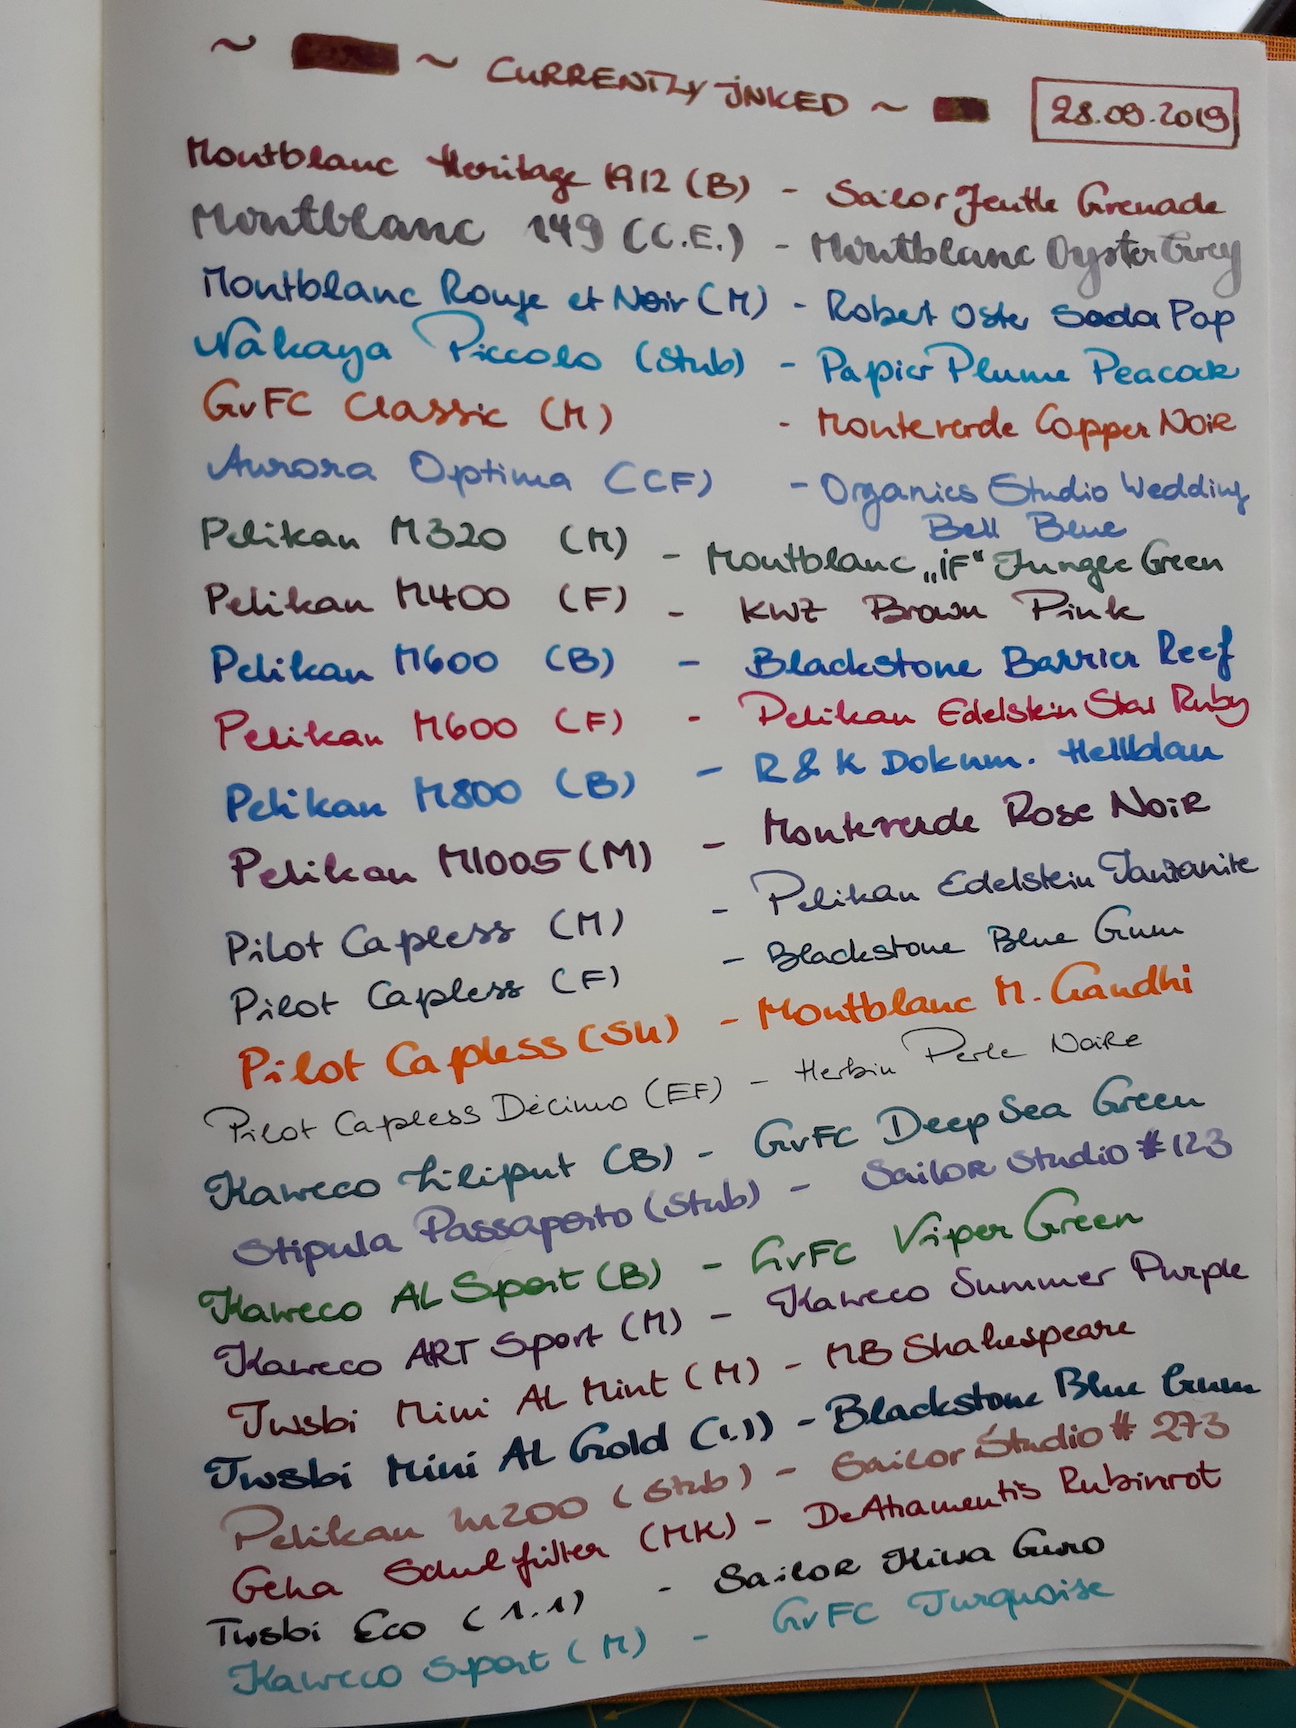 ~ ~ CURRENTLY INKED ~ 28.09.2019
Montblanc Heritage 1912 (B) - Sailor Jentle Grenade
Montblanc 149 (C.E.) - Montblanc Oyster Grey
Montblanc Rouge et Noir (M) - Robert Oster Soda Pop
Nakaya Piccolo (Stub) - Papier Plume Peacock
GvFC Classic (M) - Monteverde Copper Noir
Aurora Optima (CF) - Organics Studio Wedding
Bell Blue
Pelikan M320 (M) - Montblanc „iF“ Jungle Green
Pelikan M400 (F) - KWZ Brown Pink
Pelikan M600 (B) - Blackstone Barrier Reef
Pelikan M600 (F) - Pelikan Edelstein Star Ruby
Pelikan M800 (B) - R & K Dokum. Hellblau
Pelikan M1005 (M) - Monteverde Rose Noir
Pilot Capless (M) - Pelikan Edelstein Tanzanite
Pilot Capless (F) - Blackstone Blue Gum
Pilot Capless (SU) - Montblanc M. Gandhi
Pilot Capless Décimo (EF) - Herbin Perle Noire
Kaweco Liliput (B) - GvFC Deep Sea Green
Stipula Passaporto (Stub) - Sailor Studio #123
Kaweco AL Sport (B) - GvFC Viper Green
Kaweco ART Sport (M) - Kaweco Summer Purple
Twsbi Mini AL Mint (M) - MB Shakespeare
Twsbi Mini AL Gold (1.1) - Blackstone Blue Gum
Pelikan M200 (Stub) - Sailor Studio # 273
Geha Schulfüller (MK) - DeAtramentis Rubinrot
Twsbi Eco (1.1) - Sailor Kiwa Guro
Kaweco Sport (M) - GvFC Turquoise